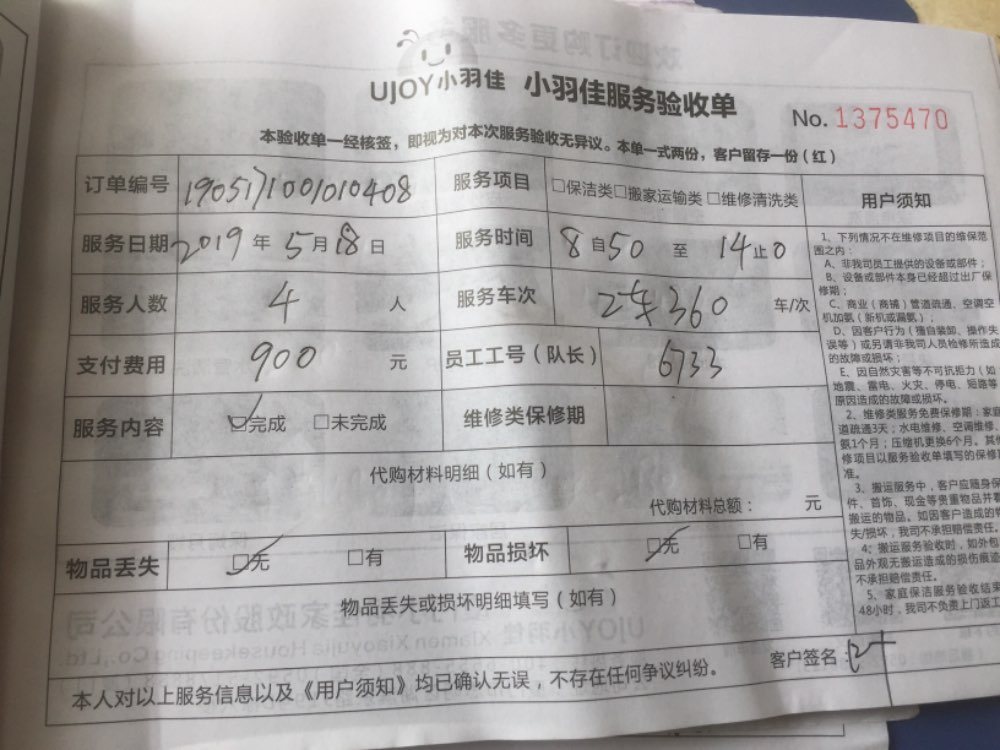 UJOY小羽佳 小羽佳服务验收单
No. 1375470
本验收单一经核签，即视为对本次服务验收无异议。本单一式两份，客户留存一份（红）
订单编号 190517100101010408 服务项目 □保洁类□搬家运输类 □维修清洗类 用户须知
服务日期 2019 年 5 月 18 日 服务时间 8 自 50 至 14 止 0
服务人数 4 人 服务车次 2车360 车/次
支付费用 900 元 员工工号（队长） 6733
服务内容 ☑完成 □未完成 维修类保修期
代购材料明细（如有）
代购材料总额： 元
物品丢失 ☑无 □有 物品损坏 ☑无 □有
物品丢失或损坏明细填写（如有）
客户签名：
本人对以上服务信息以及《用户须知》均已确认无误，不存在任何争议纠纷。
1、下列情况不在维修项目的维保范
围之内：
A、非我司员工提供的设备或部件；
B、设备或部件本身已经超过出厂保
修期；
C、商业（商铺）管道疏通、空调空
机加氨（新机或漏氨）；
D、因客户行为（擅自装卸、操作失
误等）或另请非我司人员检修所造成
的故障或损坏；
E、因自然灾害等不可抗拒力（如：
地震、雷电、火灾、停电、短路等
原因造成的故障或损坏。
2、维修类服务免费保修期：家庭
道疏通3天；水电维修、空调维修、
氨1个月；压缩机更换6个月。其他
修项目以服务验收单填写的保修
准。
3、搬运服务中，客户应随身保
件、首饰、现金等贵重物品并
搬运的物品。如因客户造成的物
失/损坏，我司不承担赔偿责任。
4、搬运服务验收时，如外包
品外观无搬运造成的损伤痕迹
不承担赔偿责任。
5、家庭保洁服务验收结束
48小时，我司不负责上门返工